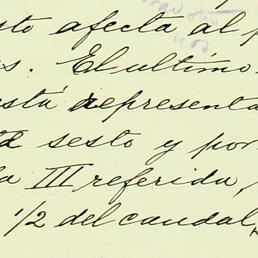 sto afecta al p
s. El ultimo
está representa
sesto y por
a III referida,
1/2 del caudal,